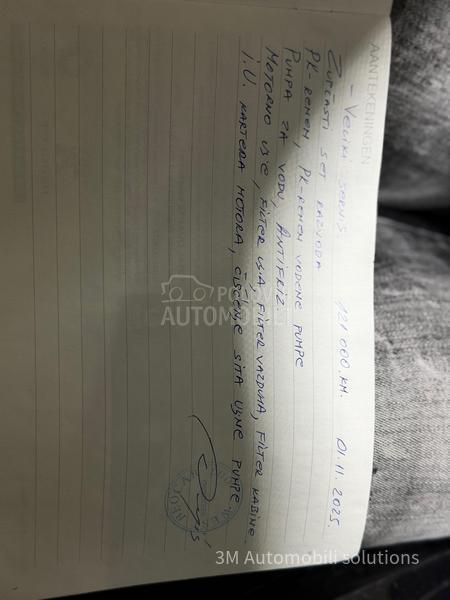 AANTEKENINGEN
- VELIKI SERVIS 121 000. KM. 01.11. 2025.
ZUPČASTI SET RAZVODA
PK-REMEN, PK-REMEN VODENE PUMPE
PUMPA ZA VODU, ANTIFRIZ
MOTORNO ULJE, FILTER ULJA, FILTER VAZDUHA, FILTER KABINE.
I.U. KARTERA MOTORA, ČIŠĆENJE SITA ULJNE PUMPE
POLOVNI
AUTOMOBILI
3M Automobili solutions